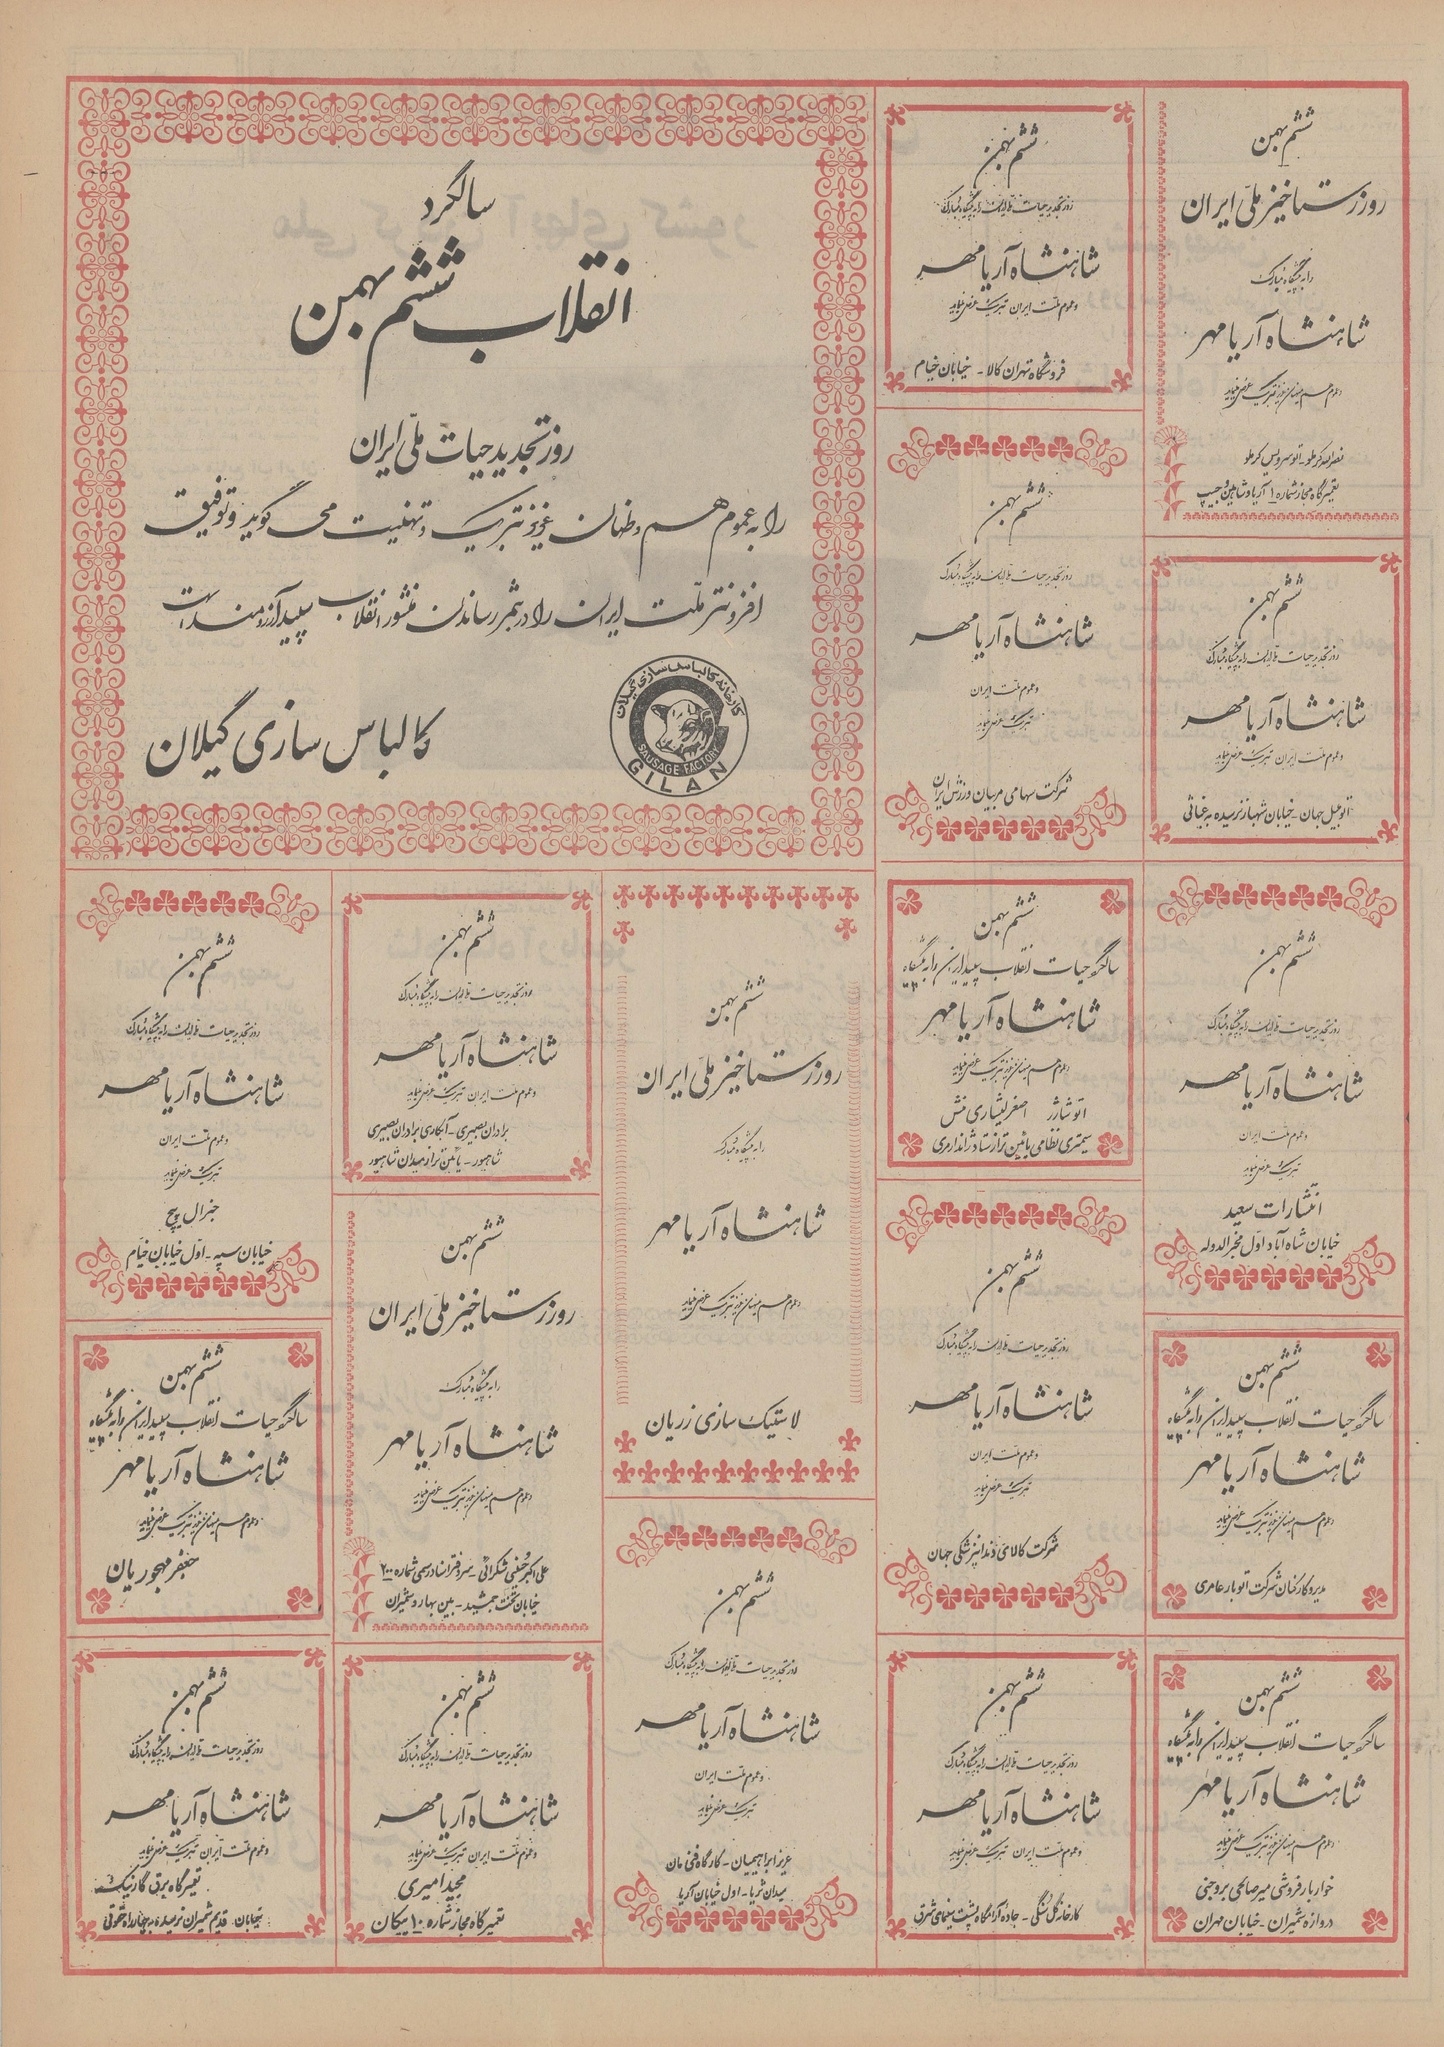 سالگرد
انقلاب ششم بهمن
روز تجدید حیات ملّی ایران
را به عموم هم وطنان عزیز تبریک و تهنیت می گوید و توفیق
افزونتر ملّت ایران را در بثمر رساندن منشور انقلاب سپید آرزومند است
کارخانه کالباس سازی گیلان
SAUSAGE FACTORY
GILAN
کالباس سازی گیلان
ششم بهمن
روز تجدید حیات ملّی ایران را به پیشگاه مبارک
شاهنشاه آریامهر
و عموم ملت ایران تبریک عرض مینماید
فروشگاه تهران کالا - خیابان خیام
ششم بهمن
روز رستاخیز ملّی ایران
را به پیشگاه مبارک
شاهنشاه آریامهر
و عموم هم میهنان عزیز تبریک عرض مینماید
نصراله کرملو - اتوسرویس کرملو
تعمیرگاه مجاز شماره ۱ آریا و شاهین و جیپ
ششم بهمن
روز تجدید حیات ملّی ایران را به پیشگاه مبارک
شاهنشاه آریامهر
و عموم ملت ایران
تبریک عرض مینماید
شرکت سهامی مربیان ورزش ایران
ششم بهمن
روز تجدید حیات ملّی ایران را به پیشگاه مبارک
شاهنشاه آریامهر
و عموم ملت ایران تبریک عرض مینماید
اتومبیل جهان - خیابان شهباز نرسیده به غیاثی
ششم بهمن
سالگرد حیات انقلاب سپید ایران را به پیشگاه
شاهنشاه آریامهر
و عموم هم میهنان عزیز تبریک عرض مینماید
اتو شارژ اصغر لیثاری منش
سیمتری نظامی پائین تر از ستاد ژاندارمری
ششم بهمن
روز تجدید حیات ملّی ایران را به پیشگاه مبارک
شاهنشاه آریامهر
و عموم ملت ایران
تبریک عرض مینماید
انتشارات سعید
خیابان شاه آباد اول فخرالدوله
ششم بهمن
روز تجدید حیات ملّی ایران را به پیشگاه مبارک
شاهنشاه آریامهر
و عموم ملت ایران
تبریک عرض مینماید
جنرال پیچ
خیابان سپه - اوّل خیابان خیام
ششم بهمن
روز تجدید حیات ملّی ایران را به پیشگاه مبارک
شاهنشاه آریامهر
و عموم ملت ایران تبریک عرض مینماید
برادران بصیری - آبکاری برادران بصیری
شاهپور - پائین تر از میدان شاهپور
ششم بهمن
روز رستاخیز ملّی ایران
را به پیشگاه مبارک
شاهنشاه آریامهر
و عموم هم میهنان عزیز تبریک عرض مینماید
لاستیک سازی زریان
ششم بهمن
روز تجدید حیات ملّی ایران را به پیشگاه مبارک
شاهنشاه آریامهر
و عموم ملت ایران
تبریک عرض مینماید
شرکت کالای دندانپزشکی جهان
ششم بهمن
سالگرد حیات انقلاب سپید ایران را به پیشگاه
شاهنشاه آریامهر
و عموم هم میهنان عزیز تبریک عرض مینماید
مدیر و کارکنان شرکت اتوبار عامری
ششم بهمن
سالگرد حیات انقلاب سپید ایران را به پیشگاه
شاهنشاه آریامهر
و عموم هم میهنان عزیز تبریک عرض مینماید
جعفر مهجوریان
ششم بهمن
روز رستاخیز ملّی ایران
را به پیشگاه مبارک
شاهنشاه آریامهر
و عموم هم میهنان عزیز تبریک عرض مینماید
علی اکبر حسنی شکرائی - سردفتر اسناد رسمی شماره ۲۰۰
خیابان تخت جمشید - بین بهار و شمیران
ششم بهمن
روز تجدید حیات ملّی ایران را به پیشگاه مبارک
شاهنشاه آریامهر
و عموم ملت ایران
تبریک عرض مینماید
عزیز ابراهیمیان - کارگاه فنی مان
میدان ثریا - اول خیابان آریا
ششم بهمن
روز تجدید حیات ملّی ایران را به پیشگاه مبارک
شاهنشاه آریامهر
و عموم ملت ایران تبریک عرض مینماید
کارخانه گل سنگی - جاده آرامگاه پشت سینمای شرق
ششم بهمن
سالگرد حیات انقلاب سپید ایران را به پیشگاه
شاهنشاه آریامهر
و عموم هم میهنان عزیز تبریک عرض مینماید
خواربار فروشی میرصالحی بروجنی
دروازه شمیران - خیابان مهران
ششم بهمن
روز تجدید حیات ملّی ایران را به پیشگاه مبارک
شاهنشاه آریامهر
و عموم ملت ایران تبریک عرض مینماید
تعمیرگاه برق گازنیک
خیابان قدیم شمیران نرسیده به چهارراه
ششم بهمن
روز تجدید حیات ملّی ایران را به پیشگاه مبارک
شاهنشاه آریامهر
و عموم ملت ایران تبریک عرض مینماید
مجید امیری
تعمیرگاه مجاز شماره ۱۰ پیکان